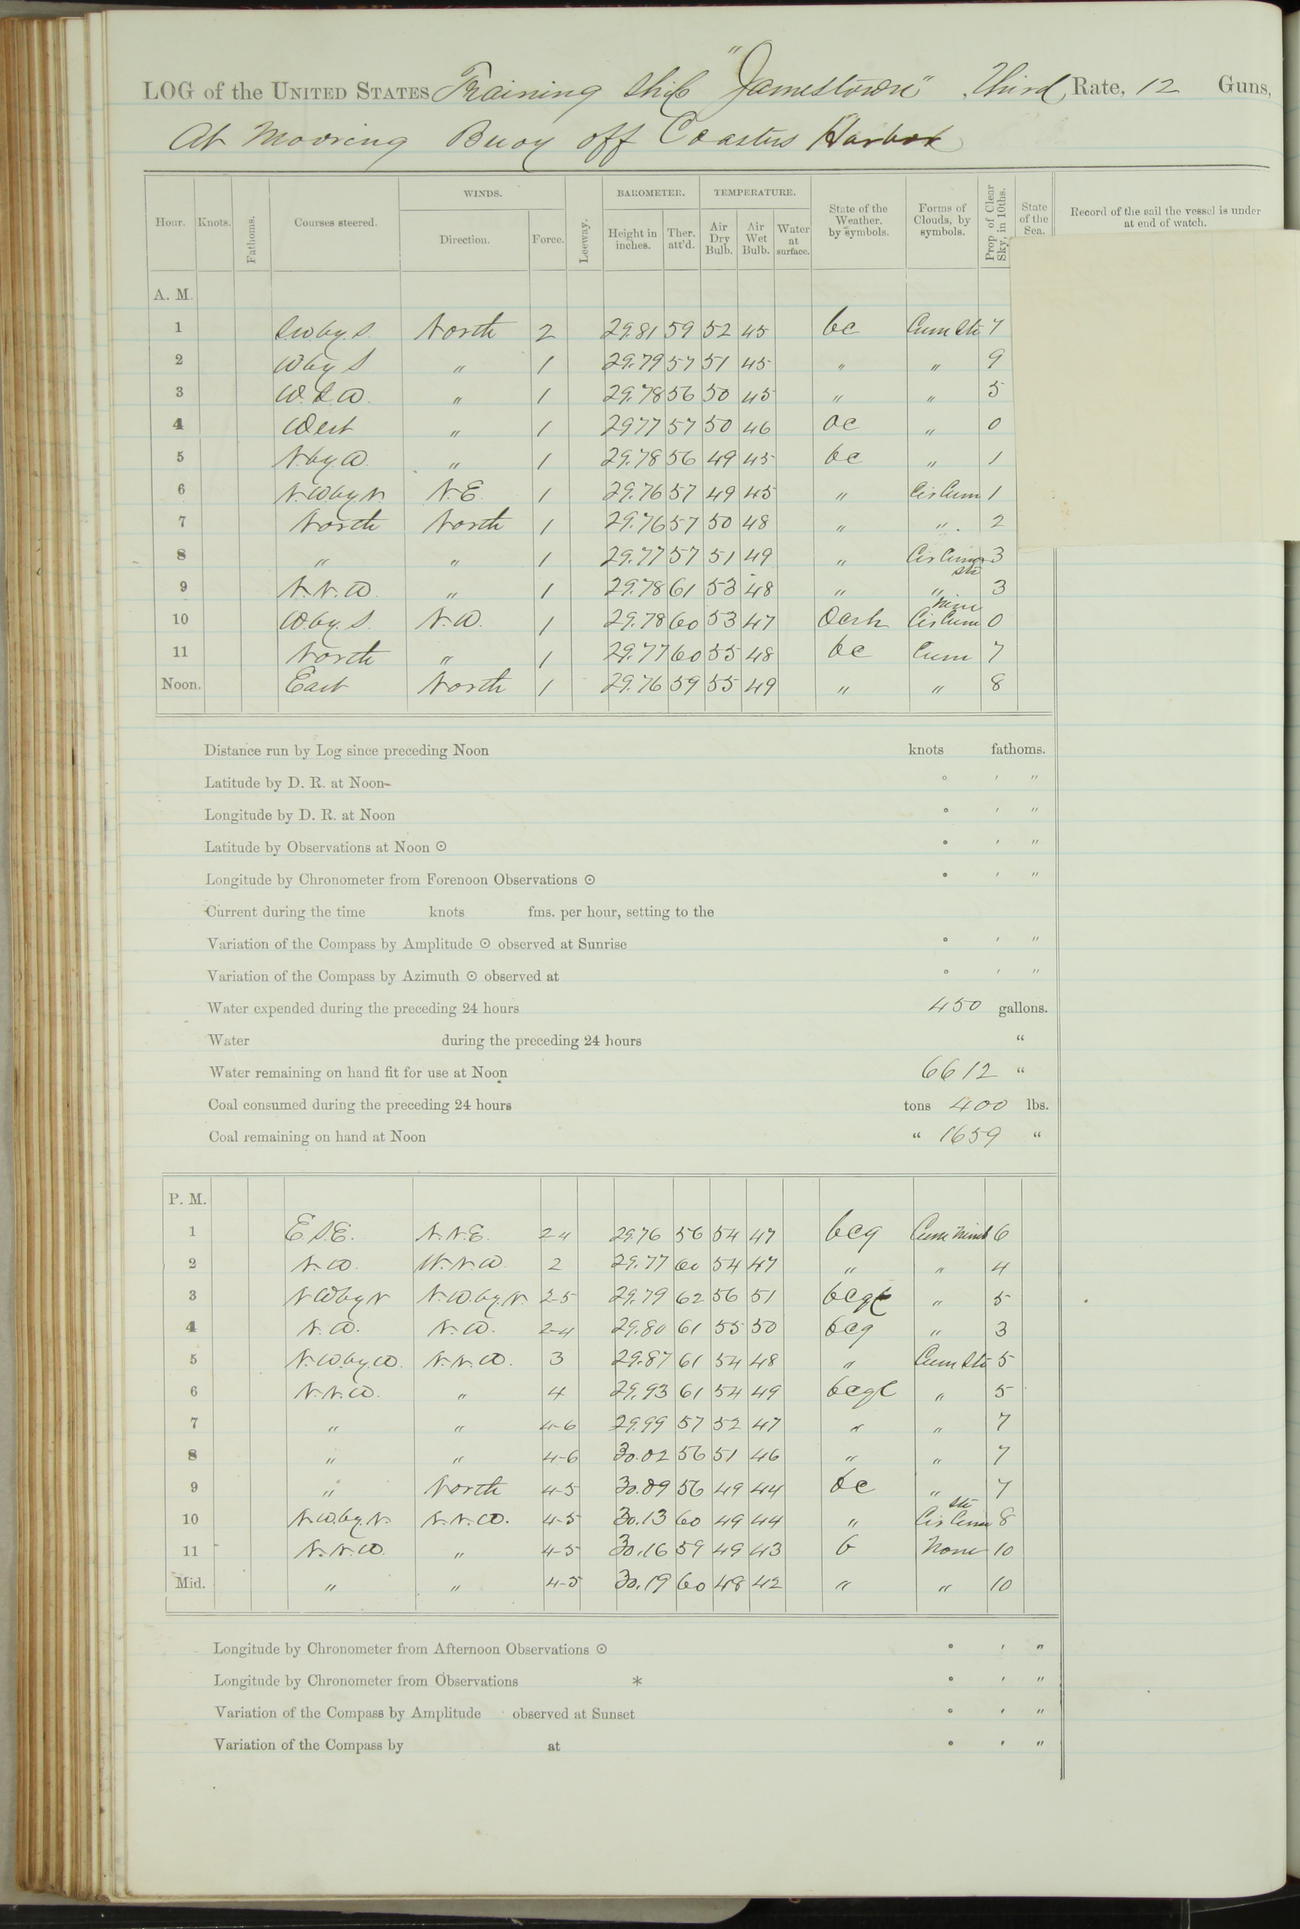 LOG of the UNITED STATES Training Ship "Jamestown", Third Rate, 12 Guns,
At Mooring Buoy off Coasters Harbor
Hour. Knots. Fathoms. Courses steered. WINDS. Direction. Force. Leeway. BAROMETER. Height in inches. Ther. att'd. TEMPERATURE. Air Dry Bulb. Air Wet Bulb. Water at surface. State of the Weather. by symbols. Forms of Clouds, by symbols. Prop. of Clear Sky, in 10ths. State of the Sea. Record of the sail the vessel is under at end of watch.
A. M.
1 SW by S. North 2 29.81 59 52 45 bc Cum Str 7
2 W by S " 1 29.79 57 51 45 " " 9
3 W.S.W. " 1 29.78 56 50 45 " " 5
4 West " 1 29 77 57 50 46 oc " 0
5 N. by W. " 1 29.78 56 49 45 bc " 1
6 N.W. by N. N.E. 1 29.76 57 49 45 " Cir Cum 1
7 North North 1 29.76 57 50 48 " " 2
8 " " 1 29.77 57 51 49 " Cir Cum Str 3
9 N.N.W. " 1 29.78 61 53 48 " " 3
10 W. by S. N.W. 1 29.78 60 53 47 Nim Cir Cum 0
11 North " 1 29.77 60 55 48 bc Cum 7
Noon. East North 1 29.76 59 55 49 " " 8
Distance run by Log since preceding Noon knots fathoms.
Latitude by D. R. at Noon ° ' "
Longitude by D. R. at Noon ° ' "
Latitude by Observations at Noon ☉ ° ' "
Longitude by Chronometer from Forenoon Observations ☉ ° ' "
Current during the time knots fms. per hour, setting to the
Variation of the Compass by Amplitude ☉ observed at Sunrise ° ' "
Variation of the Compass by Azimuth ☉ observed at ° ' "
Water expended during the preceding 24 hours 450 gallons.
Water during the preceding 24 hours "
Water remaining on hand fit for use at Noon 6612 "
Coal consumed during the preceding 24 hours tons 400 lbs.
Coal remaining on hand at Noon " 1659 "
P. M.
1 E.S.E. N.N.E. 2-4 29.76 56 54 47 bcq Cum Nimb 6
2 N.W. N.N.W. 2 29.77 60 54 47 " " 4
3 N W by N N.W. by N. 2-5 29.79 62 56 51 " 5
4 N.W. N.W. 2-4 29.80 61 55 50 bcq " 3
5 N.W. by W. N.N.W. 3 29.87 61 54 48 " Cum Str 5
6 N.N.W. " 4 29.93 61 54 49 " 5
7 " " 4-6 29.99 57 52 47 " " 7
8 " " 4-6 30.02 56 51 46 " " 7
9 " North 4-5 30.09 56 49 44 bc " 7
10 N.W. by N. N.N.W. 4-5 30.13 60 49 44 " Cir Cum Str 8
11 N.N.W. " 4-5 30.16 59 49 43 b None 10
Mid. " " 4-5 30.19 60 48 42 " " 10
Longitude by Chronometer from Afternoon Observations ☉ ° ' "
Longitude by Chronometer from Observations * ° ' "
Variation of the Compass by Amplitude observed at Sunset ° ' "
Variation of the Compass by at ° ' "